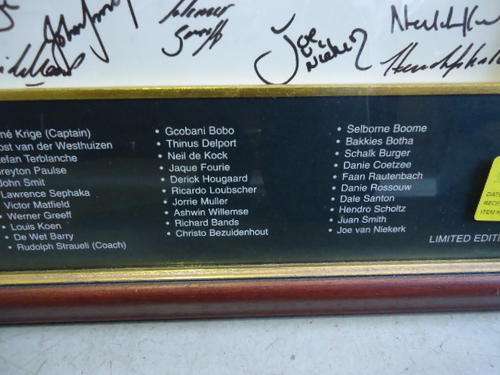 Joe v Niekerk
né Krige (Captain)
ost van der Westhuizen
efan Terblanche
reyton Paulse
John Smit
Lawrence Sephaka
Victor Matfield
• Werner Greeff
• Louis Koen
• De Wet Barry
• Rudolph Straueli (Coach)
• Gcobani Bobo
• Thinus Delport
• Neil de Kock
• Jaque Fourie
• Derick Hougaard
• Ricardo Loubscher
• Jorrie Muller
• Ashwin Willemse
• Richard Bands
• Christo Bezuidenhout
• Selborne Boome
• Bakkies Botha
• Schalk Burger
• Danie Coetzee
• Faan Rautenbach
• Danie Rossouw
• Dale Santon
• Hendro Scholtz
• Juan Smith
• Joe van Niekerk
LIMITED EDITI